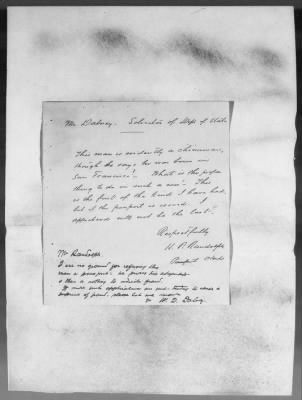 Mr. Dabney. Solicitor of Dept of State
This man is evidently a Chinaman,
though he says he was born in
San Francisco. What is the proper
thing to do in such a case? This
is the first of the kind I have had,
but if the passport is issued I
apprehend will not be the last.
Respectfully
H. P. Randolph
Passport Clerk
Mr Randolph.
I see no ground for refusing this
man a passport. He proves his
& there is nothing to indicate fraud.
If such applications are
of fraud, please let me know
W. D. Dabney